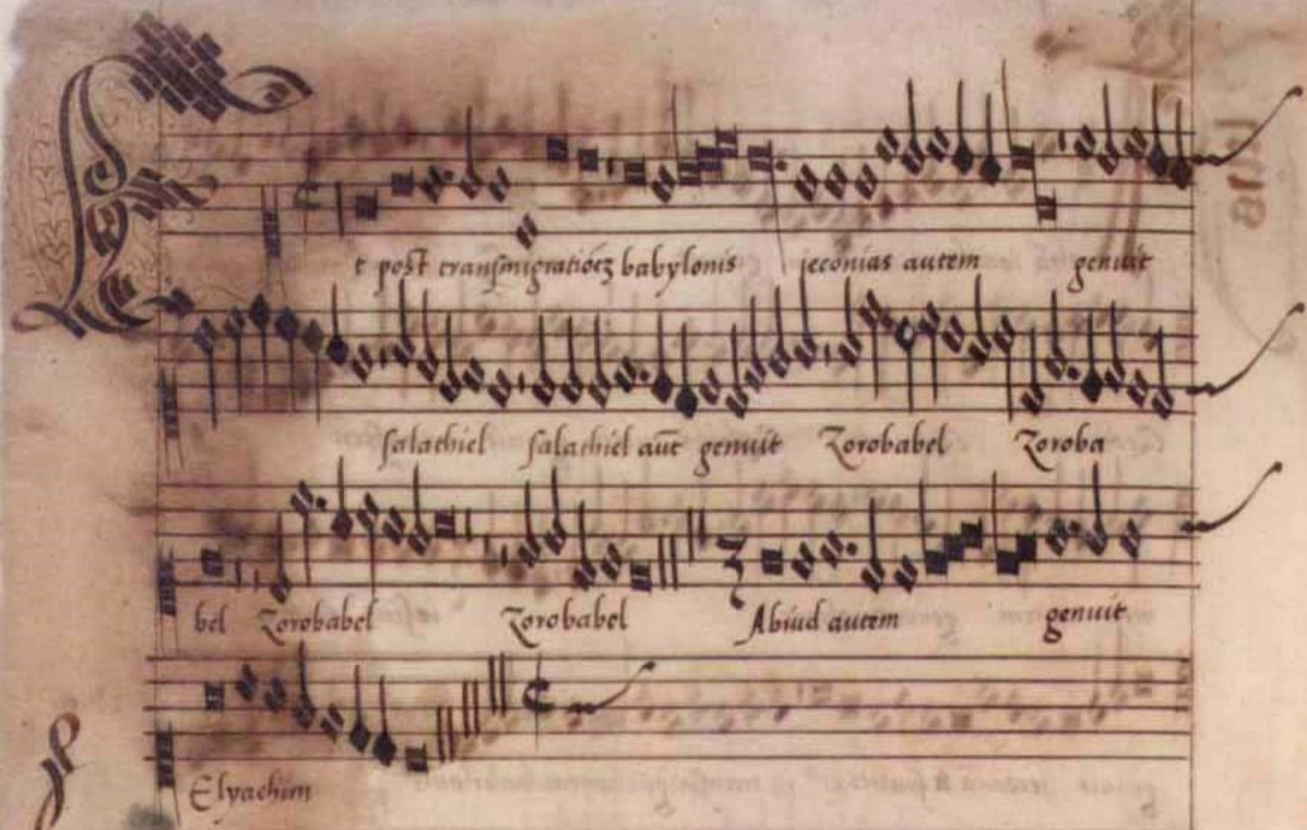 Et post transmigratiōez babylonis jeconias autem genuit
salathiel salathiel aūt genuit Zorobabel Zoroba
bel Zorobabel Zorobabel Abiud autem genuit
Elyachim